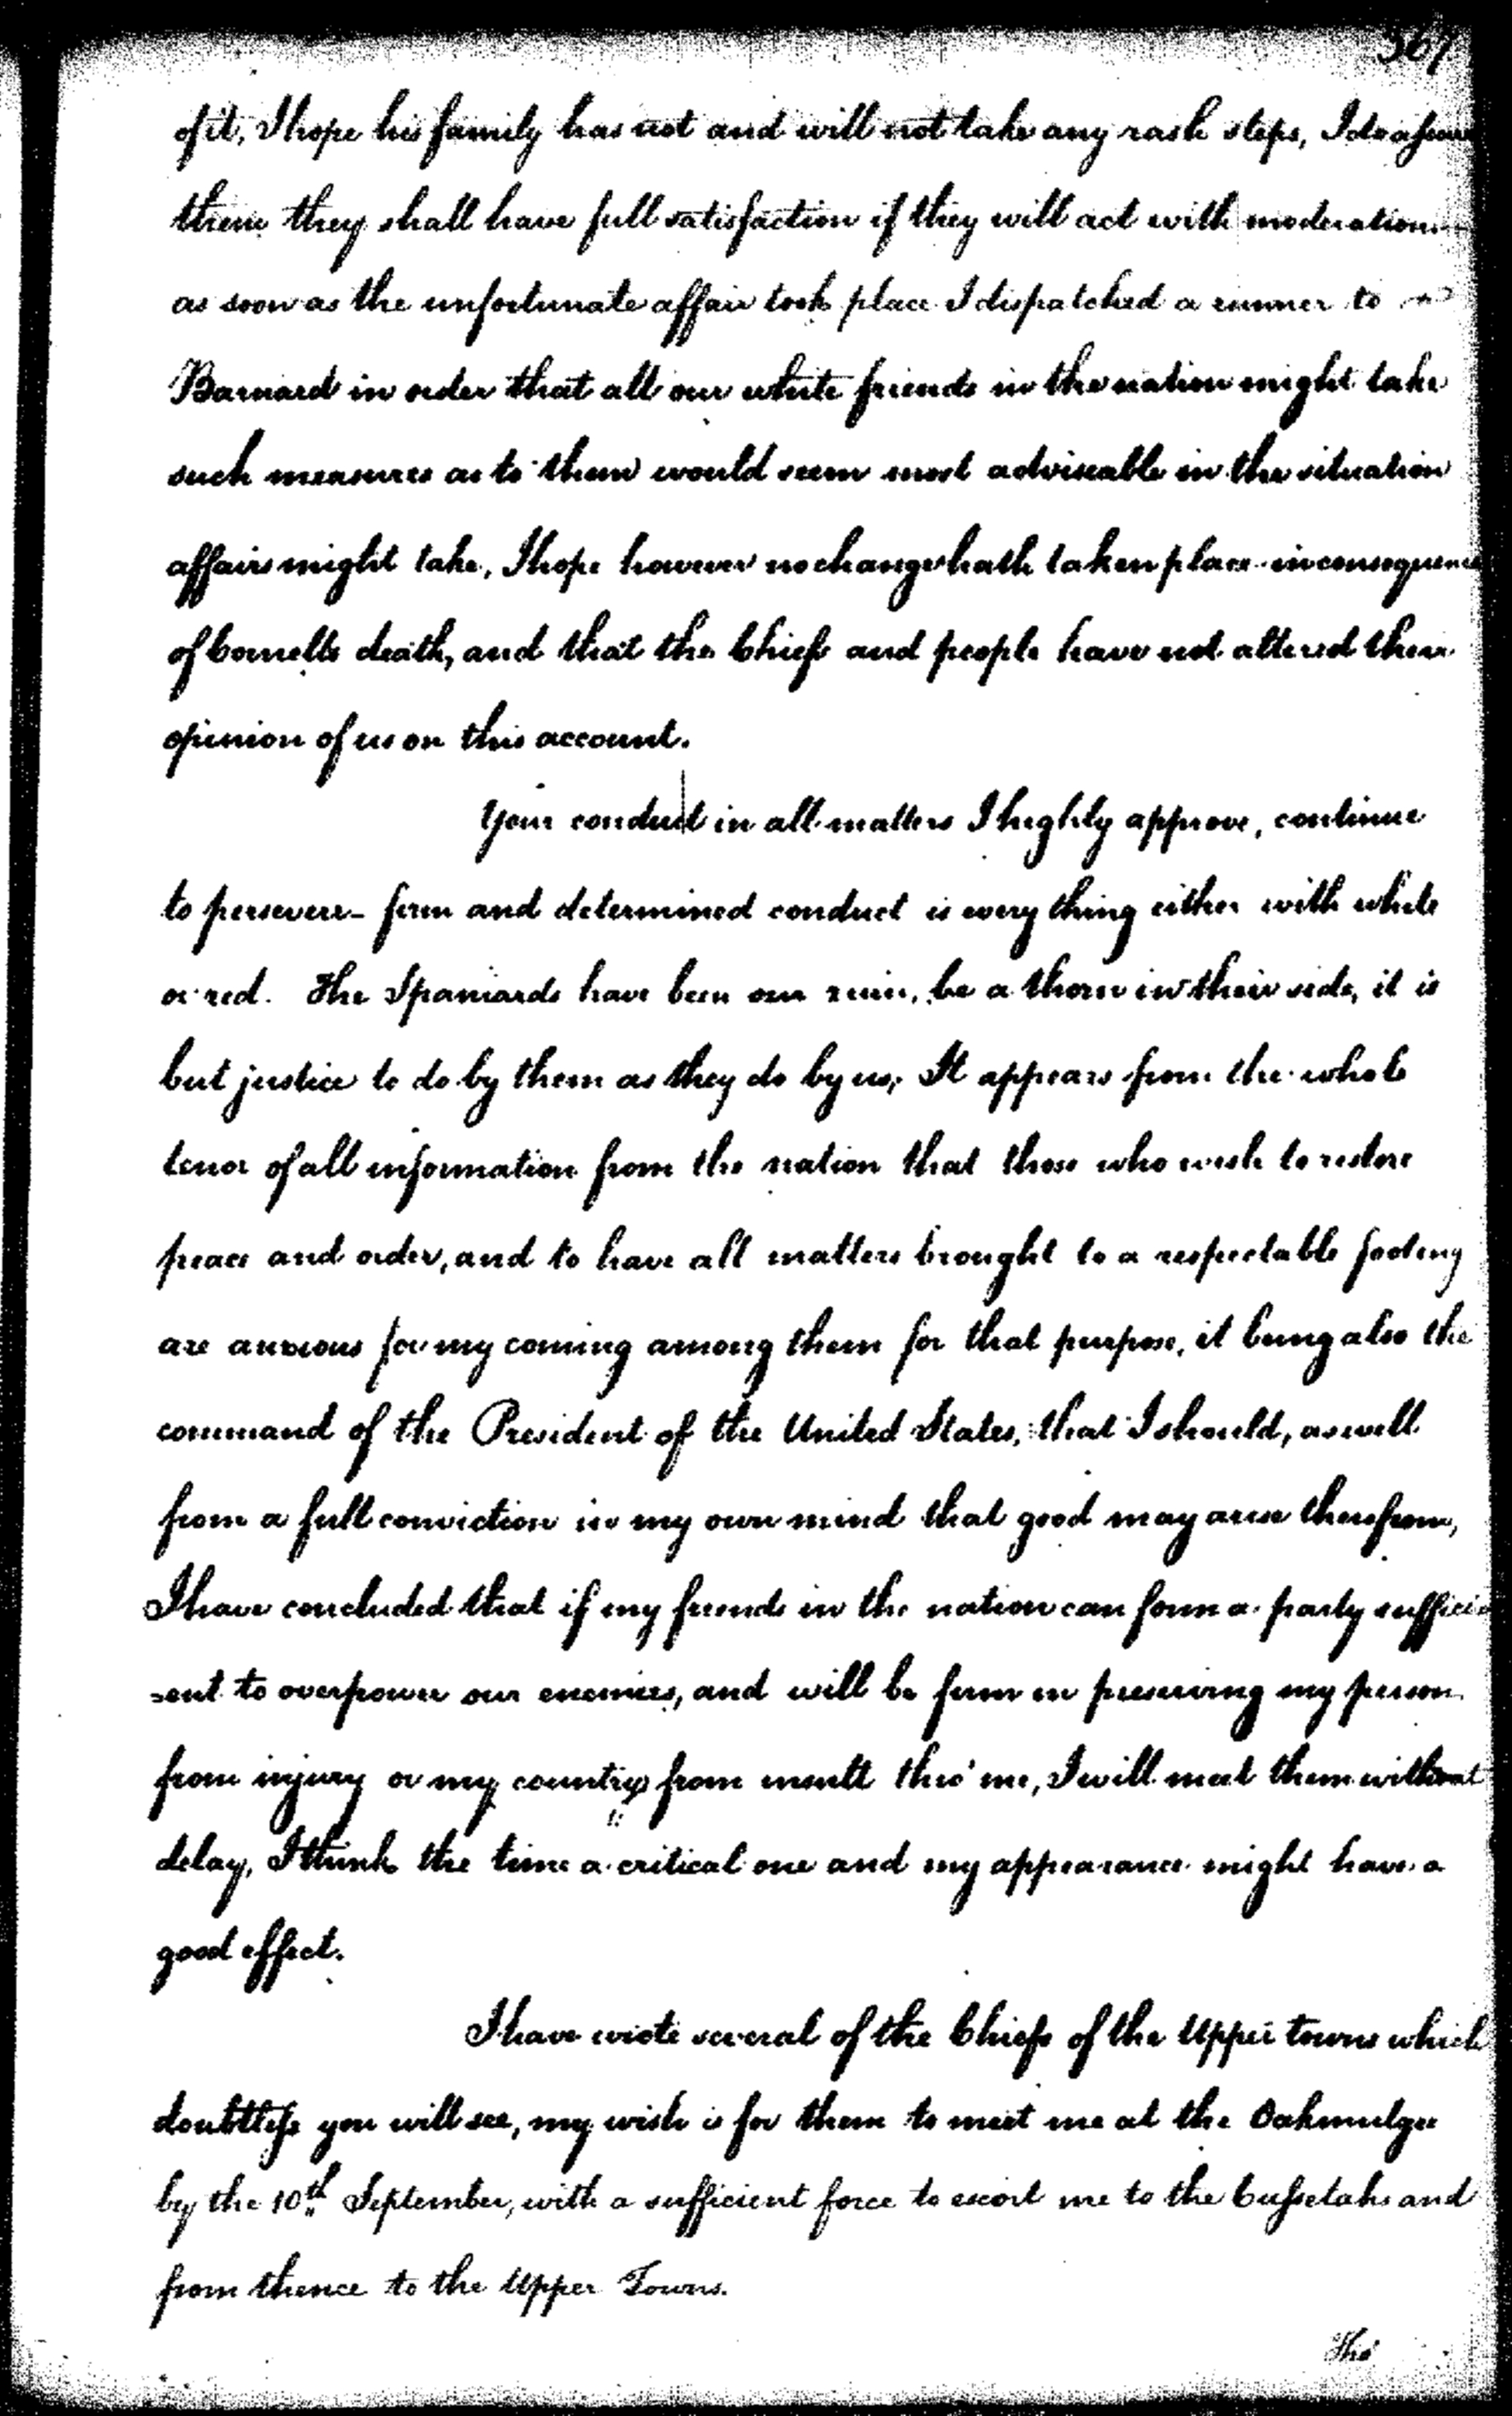 367
of it, I hope his family has not and will not take any rash steps, I do assure
them they shall have full satisfaction if they will act with moderation
as soon as the unfortunate affair took place I dispatched a runner to
Barnard in order that all our white friends in the nation might take
such measures as to them would seem most adviseable in the situation
affairs might take, I hope however no change hath taken place in consequence
of Cornells death, and that the Chiefs and people have not altered their
opinion of us on this account.
Your conduct in all matters I highly approve, continue
to persevere - firm and determined conduct is every thing either with white
or red. The Spaniards have been our ruin, be a thorn in their side, it is
but justice to do by them as they do by us; It appears from the whole
tenor of all information from the nation that those who wish to restore
peace and order, and to have all matters brought to a respectable footing
are anxious for my coming among them for that purpose, it being also the
command of the President of the United States, that I should, as well
from a full conviction in my own mind that good may arise therefrom,
I have concluded that if my friends in the nation can form a party suffici
=ent to overpower our enemies, and will be firm in preserving my person
from injury or my country from insult thro' me, I will meet them without
delay, I think the time a critical one and my appearance might have a
good effect.
I have wrote several of the Chiefs of the Upper towns which
doubtless you will see, my wish is for them to meet me at the Oakmulgee
by the 10th September, with a sufficient force to escort me to the Cussetahs and
from thence to the Upper Towns.
Tho'